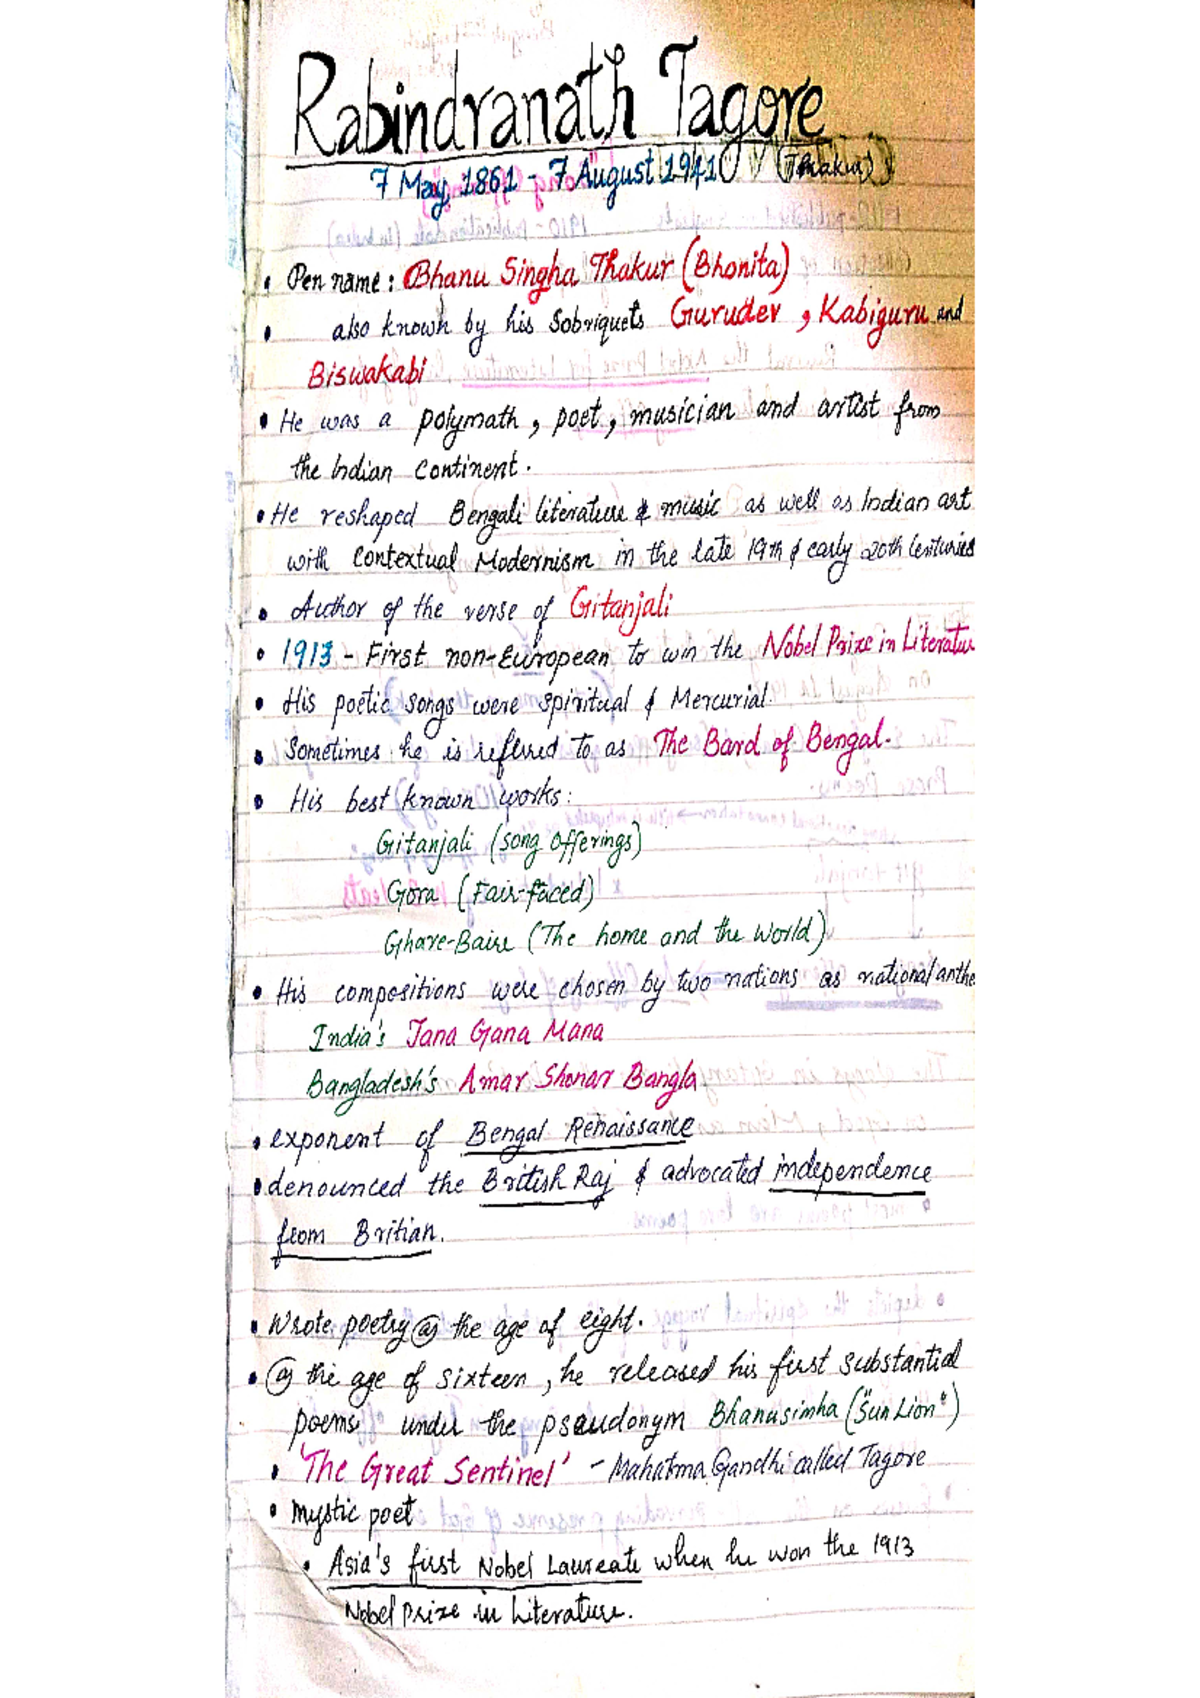 Rabindranath Tagore
7 May, 1861 - 7 August 1941 (Thakur)
• Pen name : Bhanu Singha Thakur (Bhonita)
• also known by his Sobriquets Gurudev , Kabiguru and
Biswakabi
• He was a polymath , poet , musician and artist from
the Indian Continent .
• He reshaped Bengali literature & music as well as Indian art
with Contextual Modernism in the late 19th & early 20th Centuries
• Author of the verse of Gitanjali
• 1913 - First non-European to win the Nobel Prize in Literatu
• His poetic songs were spiritual & Mercurial.
• Sometimes he is reffered to as The Bard of Bengal.
• His best known works :
Gitanjali (song offerings)
Gora (Fair-faced)
Ghare-Baire (The home and the World)
• His compositions were chosen by two nations as national anthe
India's Jana Gana Mana
Bangladesh's Amar Shonar Bangla
• exponent of Bengal Renaissance
• denounced the British Raj & advocated independence
from Britian.
• Wrote poetry @ the age of eight.
• @ the age of sixteen , he released his first substantial
poems under the pseudonym Bhanusimha ("Sun Lion")
• 'The Great Sentinel' - Mahatma Gandhi called Tagore
• mystic poet
• Asia's first Nobel Laureate when he won the 1913
Nobel prize in literature.